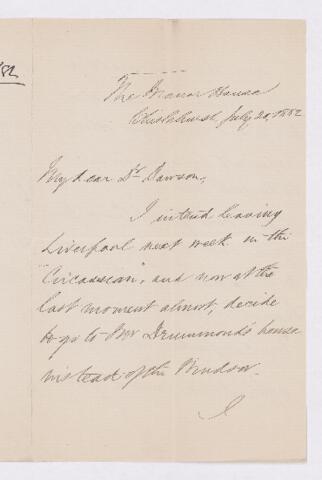 82
The Manor House
Chislehurst July 20, 1882
My dear Dr Dawson,
I intend leaving
Liverpool next week in the
"Circassian", and now at the
last moment almost, decide
to go to Mr Drummond's house
instead of the Windsor.
I